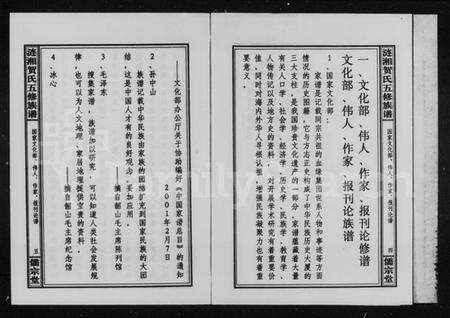 涟湘贺氏五修族谱
国家文化部、伟人、作家、报刊论谱
四
儒宗堂
一、文化部、伟人、作家、报刊论修谱
文化部、伟人、作家、报刊论族谱
1、国家文化部：
家谱是记载同宗共祖的血缘集团世系人物和事迹等方面
情况的历史图籍，它与方志正史构成了中华民族历史大厦的
三大支柱，是我国珍贵文化遗产的一部分，家谱蕴藏着大量
有关人口学、社会学、经济学、历史学、民族学、教育学、
人物传记以及地方史的资料，对开展学术研究有着重要价
值，同时对海内外华人寻根认祖，增强民族凝聚力也有着重
要意义。
——文化部办公厅关于协助编好《中国家谱总目》的通知
2001年2月7日
2、孙中山
族谱记载中华民族由家族的团结扩充到国家民族的大团
结，这是中国人才有的良好观念，要加应用。
——摘自韶山毛主席陈列馆
3、毛泽东
搜集家谱，族谱加以研究，可以知道人类社会发展规
律，也可以为人文地理、家居地理提供宝贵的资料。
——摘自韶山毛主席纪念馆
4、冰心
涟湘贺氏五修族谱
国家文化部、伟人、作家、报刊论谱
五
儒宗堂